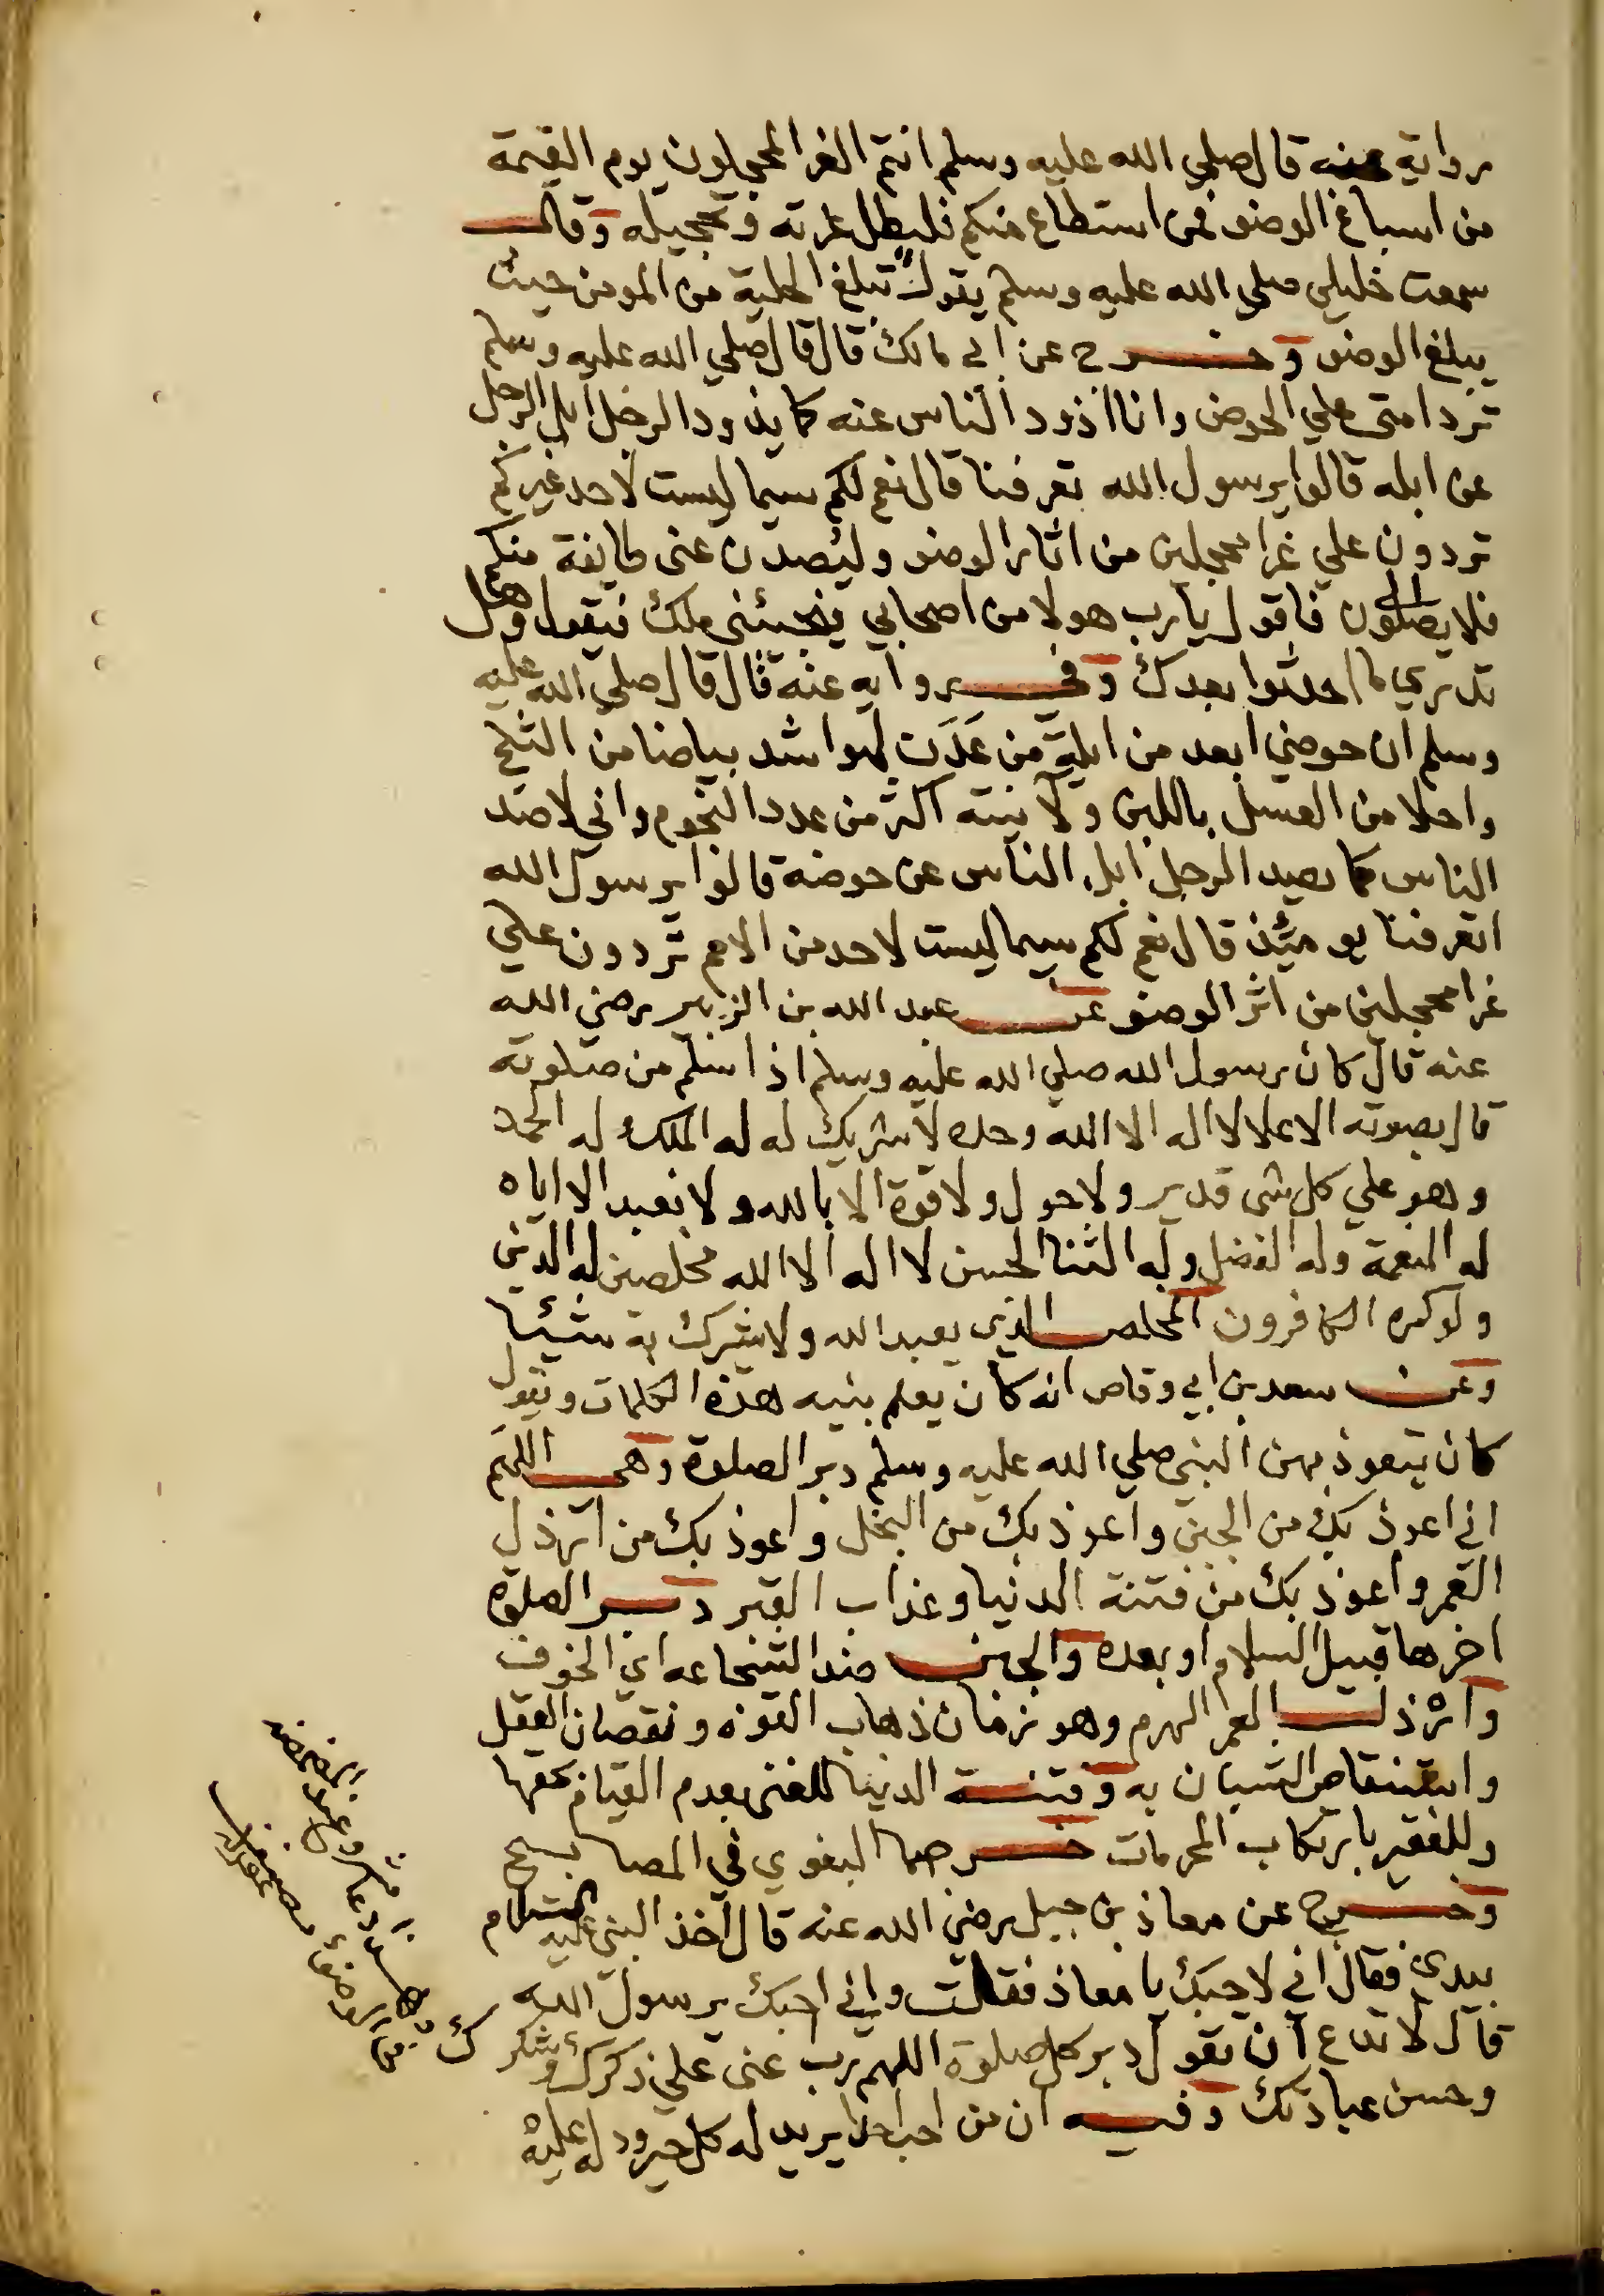 رواية عنه قال صلي الله عليه وسلم انتم الغر المحجلون يوم القيمة
من اسباغ الوضو فمن استطاع منكم فليطل غرته وتحجيله وقال
سمعت خليلي صلي الله عليه وسلم يقول تبلغ الحلية من المومن حيث
يبلغ الوضو وخرج عن ابي مالك قال قال صلي الله عليه وسلم
ترد امتي علي الحوض وانا اذود الناس عنه كما يذود الرجل ابل الرجل
عن ابله قالوا يرسول الله تعرفنا قال نعم لكم سيما ليست لاحد غيركم
تردون علي غرا محجلين من اثار الوضو وليصدن عني طايفة منكم
فلا يصلون فاقول يا رب هولا من اصحابي فيجيئني ملك فيقول وهل
تدري ما احدثوا بعدك وفي رواية عنه قال قال صلي الله عليه
وسلم ان حوضي ابعد من ايلة من عدن لهو اشد بياضا من الثلج
واحلا من العسل باللبن ولآنيته اكثر من عدد النجوم واني لاصد
الناس كما يصد الرجل ابل الناس عن حوضه قالوا يرسول الله
اتعرفنا يوميئذ قال نعم لكم سيما ليست لاحد من الامم تردون علي
غرا محجلين من اثر الوضو عن عبد الله بن الزبير رضي الله
عنه قال كان رسول الله صلي الله عليه وسلم اذا سلم من صلوته
قال بصوته الاعلا لا اله الا الله وحده لا شريك له له الملك له الحمد
وهو علي كل شي قدير ولا حول ولا قوة الا بالله ولا نعبد الا اياه
له النعمة وله الفضل وله الثنا الحسن لا اله الا الله مخلصين له الدين
ولو كره الكافرون المخلص الذي يعبد الله ولا يشرك به شيئا
وعن سعد بن ابي وقاص انه كان يعلم بنيه هذه الكلمات ويقول
كان يتعوذ بهن النبي صلي الله عليه وسلم دبر الصلوة وهي اللهم
اني اعوذ بك من الجبن واعوذ بك من البخل واعوذ بك من ارذل
العمر واعوذ بك من فتنة الدنيا وعذاب القبر دبر الصلوة
اخرها قبيل السلام او بعده والجبن ضد الشجاعه اي الخوف
وارذل العمر الهرم وهو زمان ذهاب القوة ونقصان العقل
وانتقاص الشبان به وفتنة الدنيا للغني بعدم القيام بحقها
وللفقير بارتكاب المحرمات خرجهما البغوي في المصابيح
وخرج عن معاذ بن جبل رضي الله عنه قال اخذ النبي عليه السلام
بيدي فقال اني لاحبك يا معاذ فقلت واني احبك يرسول الله
قال لا تدع ان تقول دبر كل صلوة اللهم رب عني علي ذكرك وشكرك
وحسن عبادتك وفيه ان من احب احدا يريد له كل خير ود له عليه
المضمضه
من الوضوء